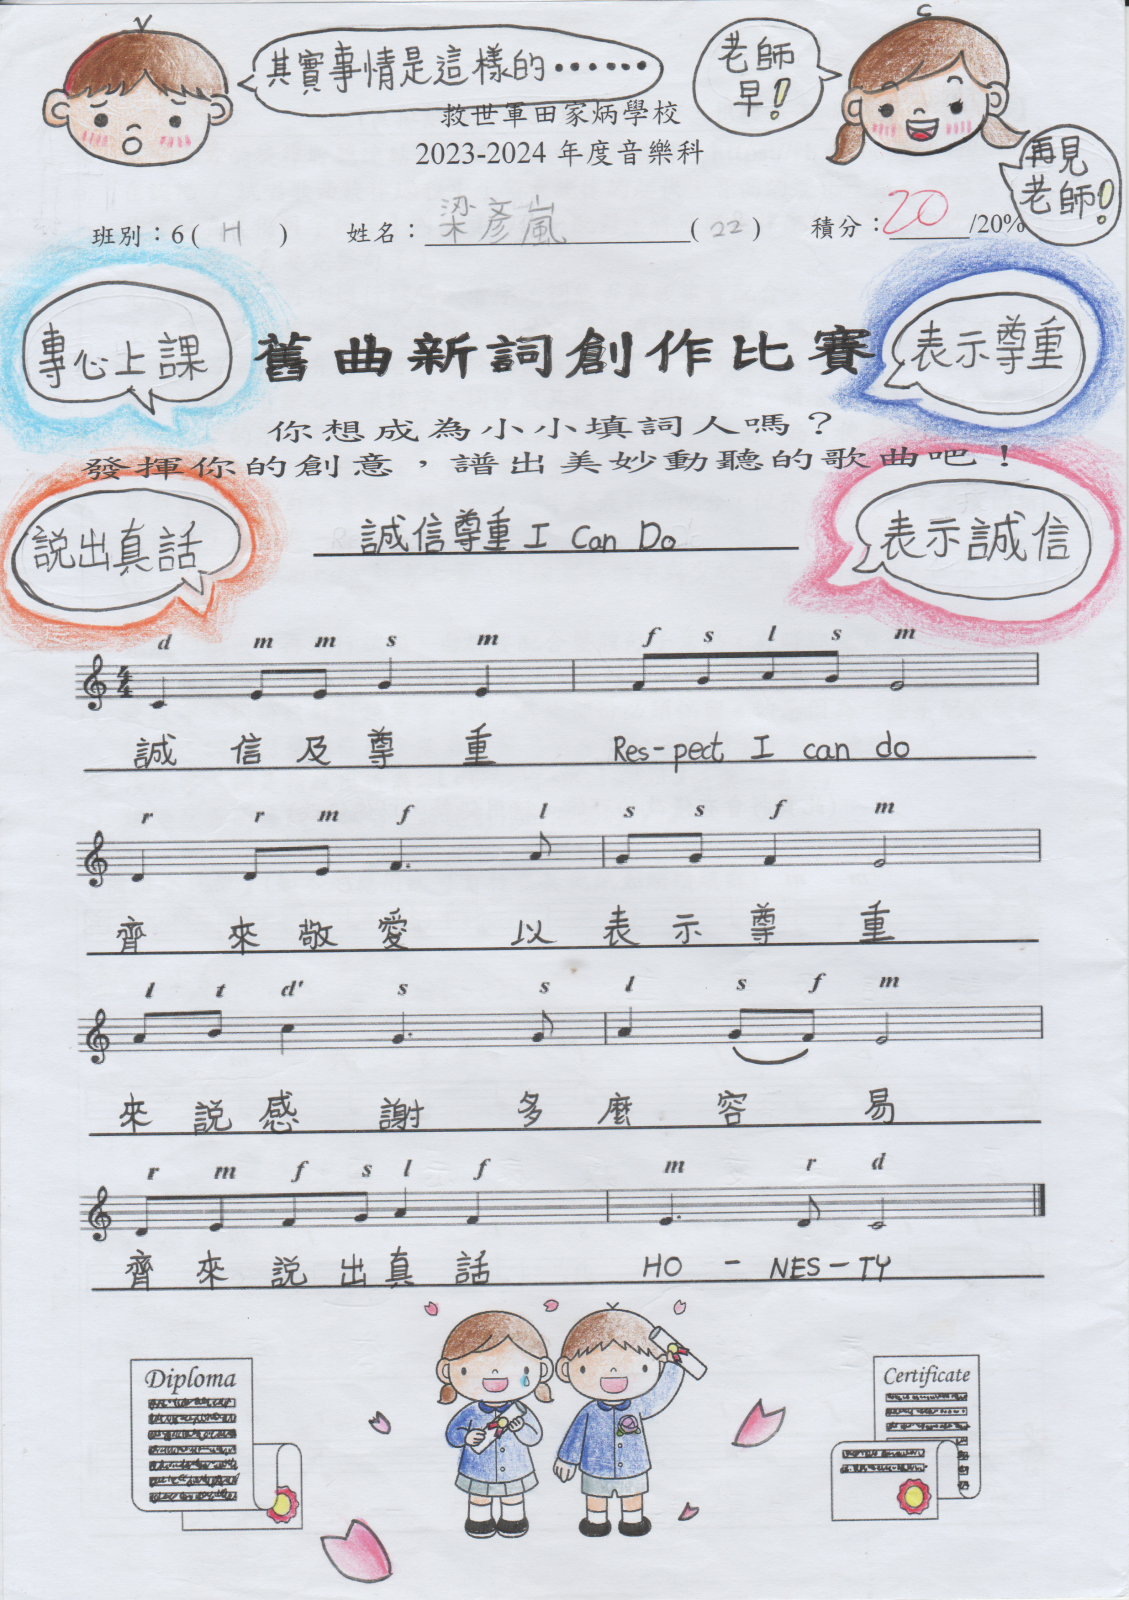 其實事情是這樣的······
老師
早！
救世軍田家炳學校
2023-2024 年度音樂科
再見
老師！
班別：6 ( H ) 姓名：梁彥嵐 ( 22 ) 積分：20/20%
專心上課
舊曲新詞創作比賽
表示尊重
你想成為小小填詞人嗎？
發揮你的創意，譜出美妙動聽的歌曲吧！
說出真話
誠信尊重 I Can Do
表示誠信
d m m s m f s l s m
誠 信 及 尊 重 Res-pect I can do
r r m f l s s f m
齊 來 敬 愛 以 表 示 尊 重
l t d' s s l s f m
來 說 感 謝 多 麼 容 易
r m f s l f m r d
齊 來 說 出 真 話 HO - NES-TY
Diploma
Certificate